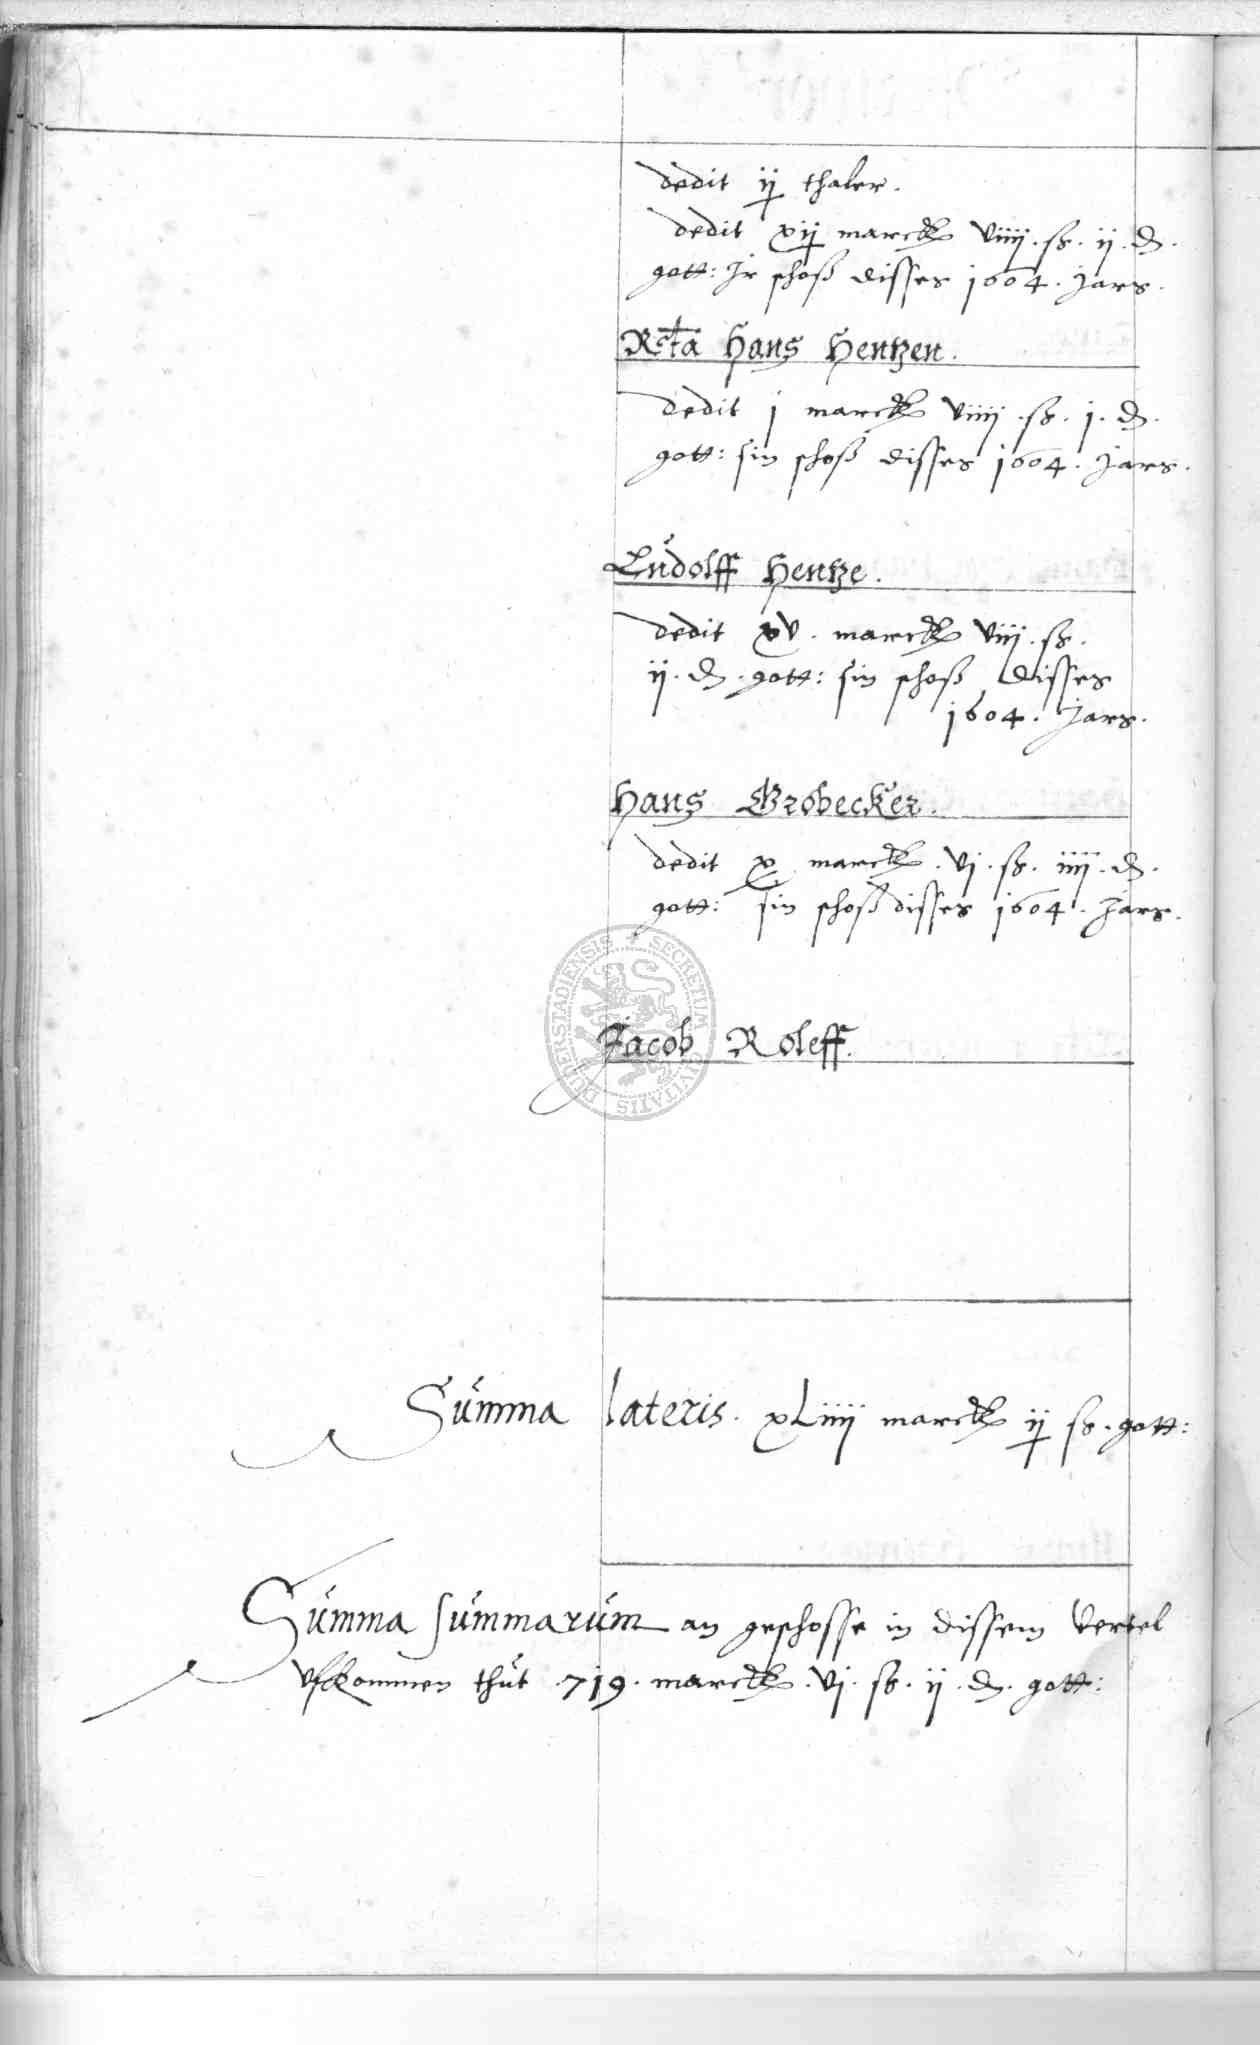 dedit ij thaler.
dedit xij marck viiij. ß. ij. d.
gott: Jr schoß disses 1604. Jars.
Rcta Hans Hentzen.
dedit j marck viiij. ß. j. d.
gott: sin schoß disses 1604. Jars.
Ludolff Hentze.
dedit xv. marck viij. ß.
ij. d. gott: sin schoß disses
1604. Jars.
Hans Grobecker.
dedit x marck. vj. ß. iiij. d.
gott: sin schoß disses 1604. Jars.
SECRETUM CIVITATIS DUDERSTADIENSIS
Jacob Roleff.
Summa lateris. xLiiij marck ij ß. gott:
Summa summarum an geschosse in dissem vertel
vfkommen thut 719. marck. vj. ß. ij. d. gott: